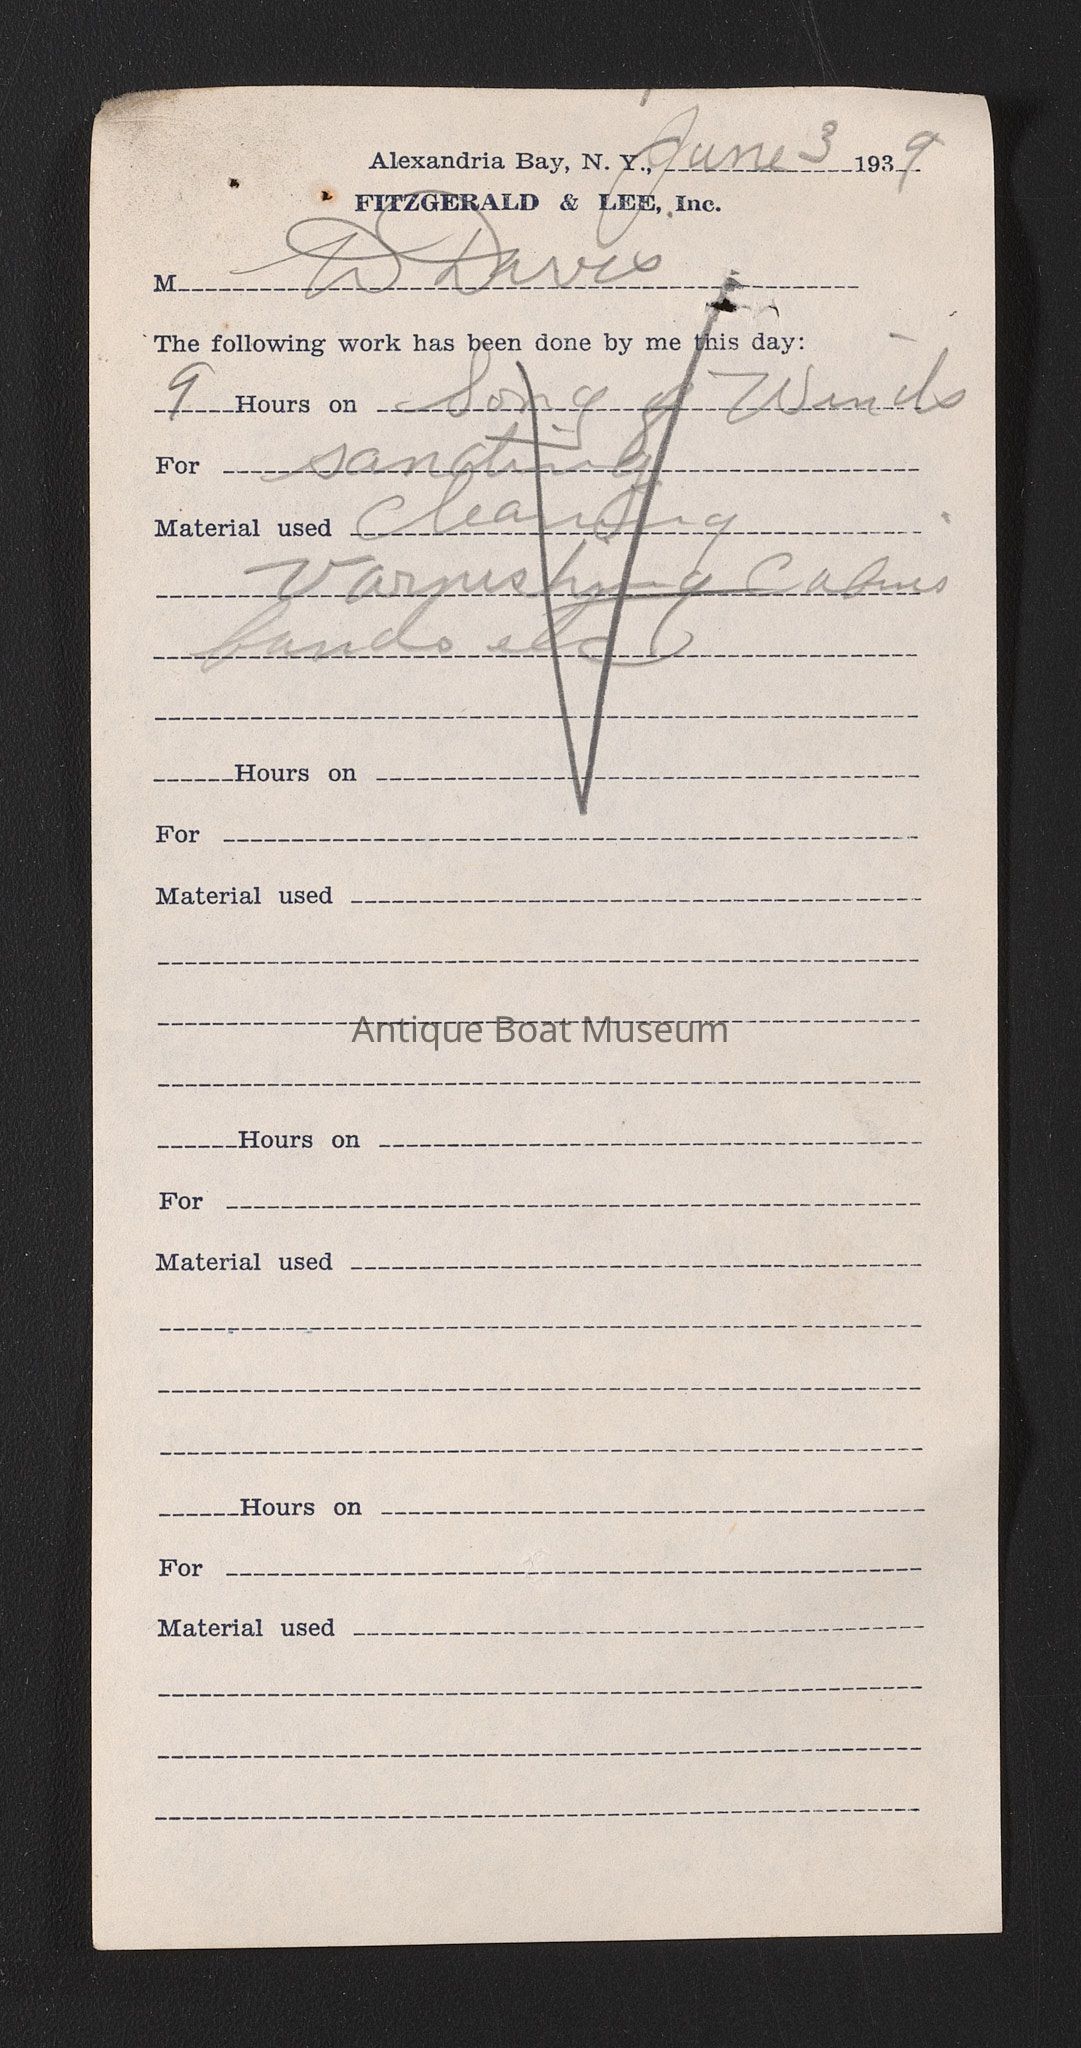 Alexandria Bay, N. Y., June 3 1939
FITZGERALD & LEE, Inc.
M W Davis
The following work has been done by me this day:
9 Hours on Song of Winds
For sanding
Material used cleaning
Varnishing Cabins
bands etc
Hours on
For
Material used
Antique Boat Museum
Hours on
For
Material used
Hours on
For
Material used